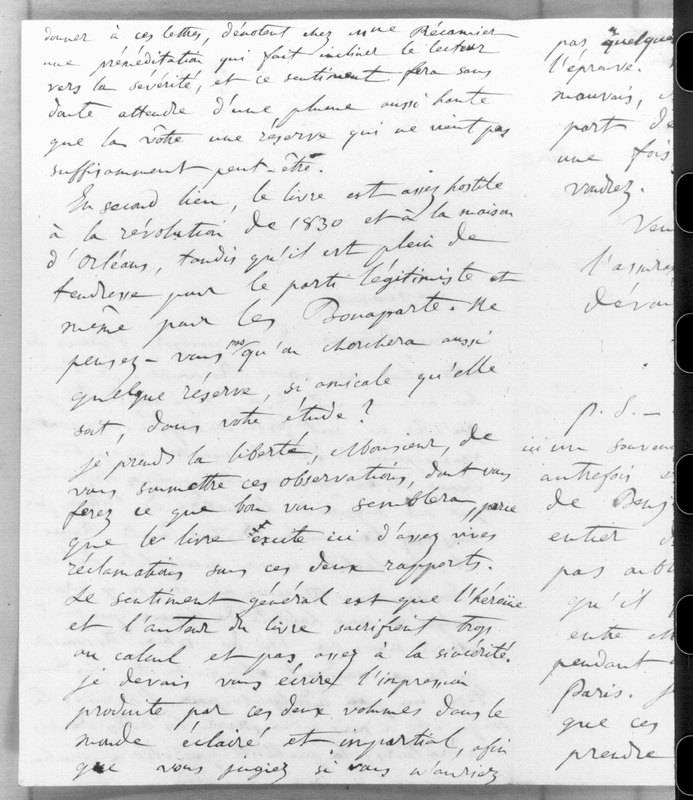 donner à ces lettres, dénotent chez Mme Récamier
une préméditation qui fait incliner le lecteur
vers la sévérité, et ce sentiment fera sans
doute attendre d'une plume aussi haute
que la vôtre une réserve qui ne vient pas
suffisamment peut-être.
En second lieu, le livre est assez hostile
à la révolution de 1830 et à la maison
d'Orléans, tandis qu'il est plein de
tendresse pour le parti légitimiste et
même pour les Bonaparte. Ne
pensez-vous pas qu'on cherchera aussi
quelque réserve, si amicale qu'elle
soit, dans votre étude ?
Je prends la liberté, Monsieur, de
vous soumettre ces observations, dont vous
ferez ce que bon vous semblera, parce
que le livre excite ici d'assez vives
réclamations sous ces deux rapports.
Le sentiment général est que l'héroïne
et l'auteur du livre sacrifient trop
au calcul et pas assez à la sincérité.
Je devais vous écrire l'impression
produite par ces deux volumes dans le
monde éclairé et impartial, afin
que vous jugiez si vous n'auriez
pas quelque
l'épreuve.
mauvais,
part de
une fois
voudrez.
Ven
l'assuran
dévou
P. S. —
un souven
autrefois
de Benj
entier d
pas oubl
qu'il
entre
pendant
Paris. J
que ces
prendre